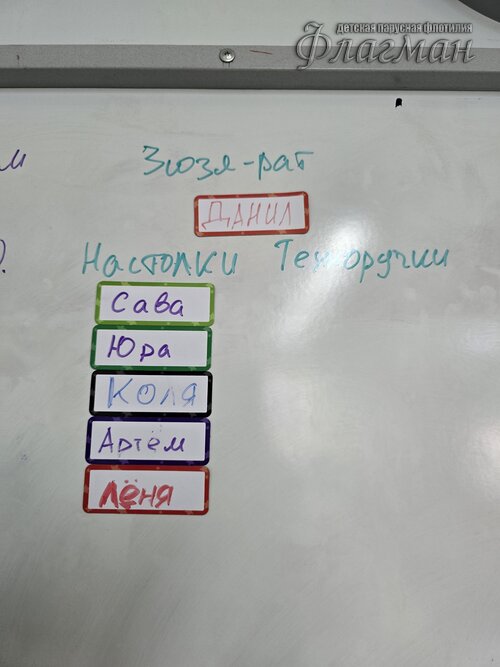 детская парусная флотилия
Флагман
м
Зюзя-рат
ДАНИЛ
Настолки Техноручки
Сава
Юра
Коля
Артём
Лёня